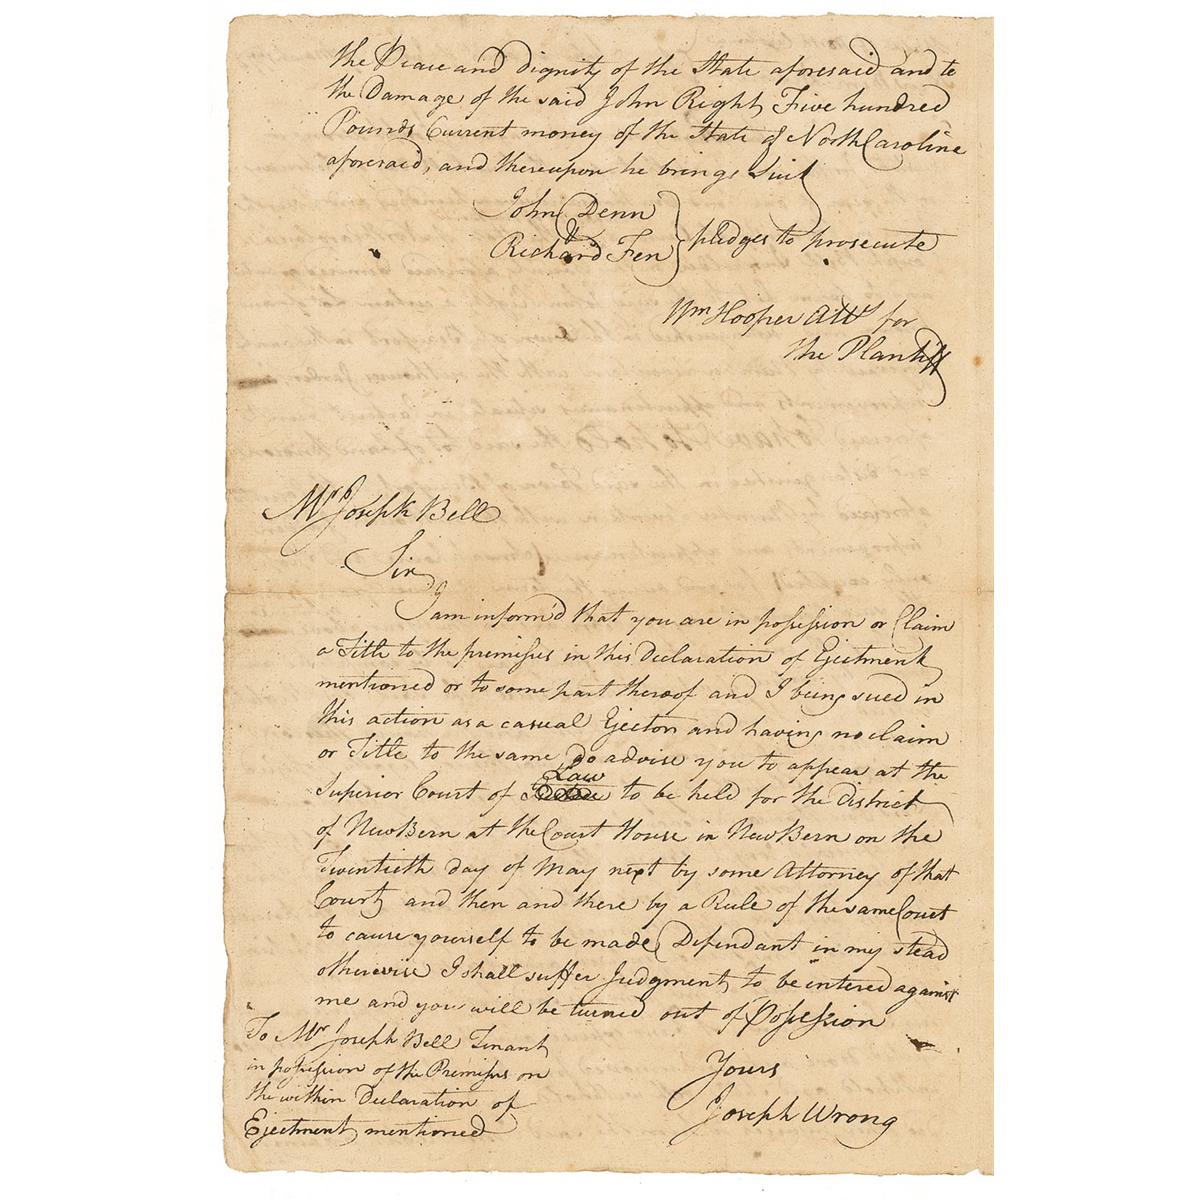 the Peace and Dignity of the State aforesaid and to
the Damage of the said John Right Five hundred
Pounds Current money of the State of North Caroline
aforesaid, and thereupon he brings Suit
John Denn
&
Richard Fen } pledges to prosecute
Wm Hooper Atty for
the Plantiff
Mr Joseph Bell
Sir
I am inform'd that you are in possession or Claim
a Title to the premises in this Declaration of Ejectment
mentioned or to some part thereof and I being sued in
this action as a casual Ejector and having no claim
or Title to the same do advise you to appear at the
Superior Court of Law to be held for the District
of New Bern at the Court House in New Bern on the
Twentieth day of May next by some Attorney of that
Court and then and there by a Rule of the same Court
to cause yourself to be made Defendant in my stead
otherwise I shall suffer Judgment to be entered against
me and you will be turned out of Possession
To Mr Joseph Bell Tenant
in possession of the Premises on
the within Declaration of
Ejectment mentioned
Yours
Joseph Wrong